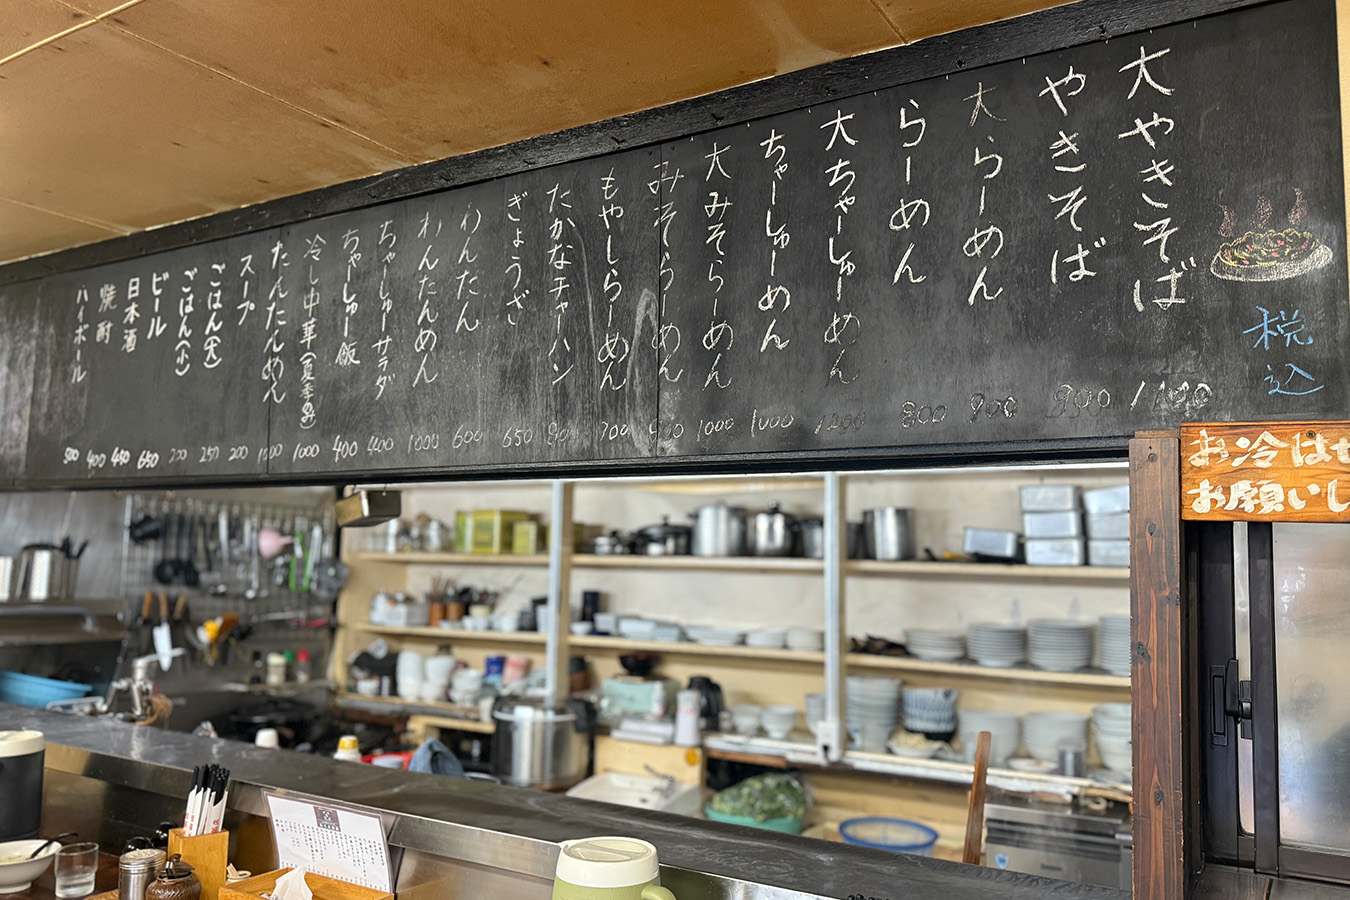 税込
大やきそば
やきそば
大らーめん 900
らーめん 800
大ちゃーしゅーめん 1200
ちゃーしゅーめん 1000
大みそらーめん 1000
みそらーめん
もやしらーめん
たかなチャーハン
ぎょうざ 650
わんたん 600
わんたんめん 1000
ちゃーしゅーサラダ 400
ちゃーしゅー飯 400
冷し中華(夏季のみ) 1000
たんたんめん
スープ 200
ごはん(大) 250
ごはん(小) 200
ビール 650
日本酒 450
焼酎 400
ハイボール 500
お冷はセ
お願いし